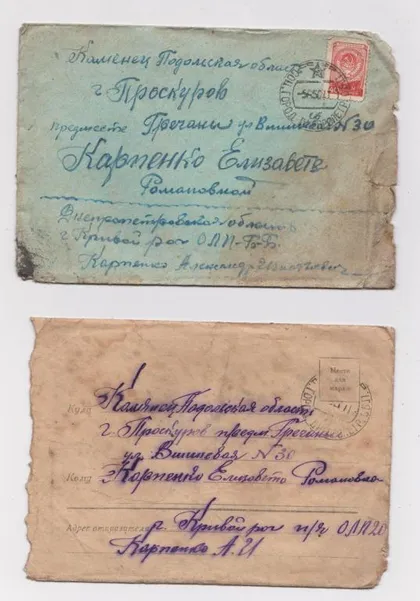 Каменец Подольская област
г Проскуров
предместе Гречаны ул Вишнева N 30
Карпенко Елизавете
Романовной
Днепропетровская область
г. Кривой рог ОЛП-Б-Б.
Карпенко Александр
Место
для
марки
Куда Каменец Подольская область
г Проскуров предм. Гречаны
ул. Вишневая N 30
Кому Карпенко Елизавето Романовна
Адрес отправителя г. Кривой рог п/я ОЛП 20
Карпенко А. И